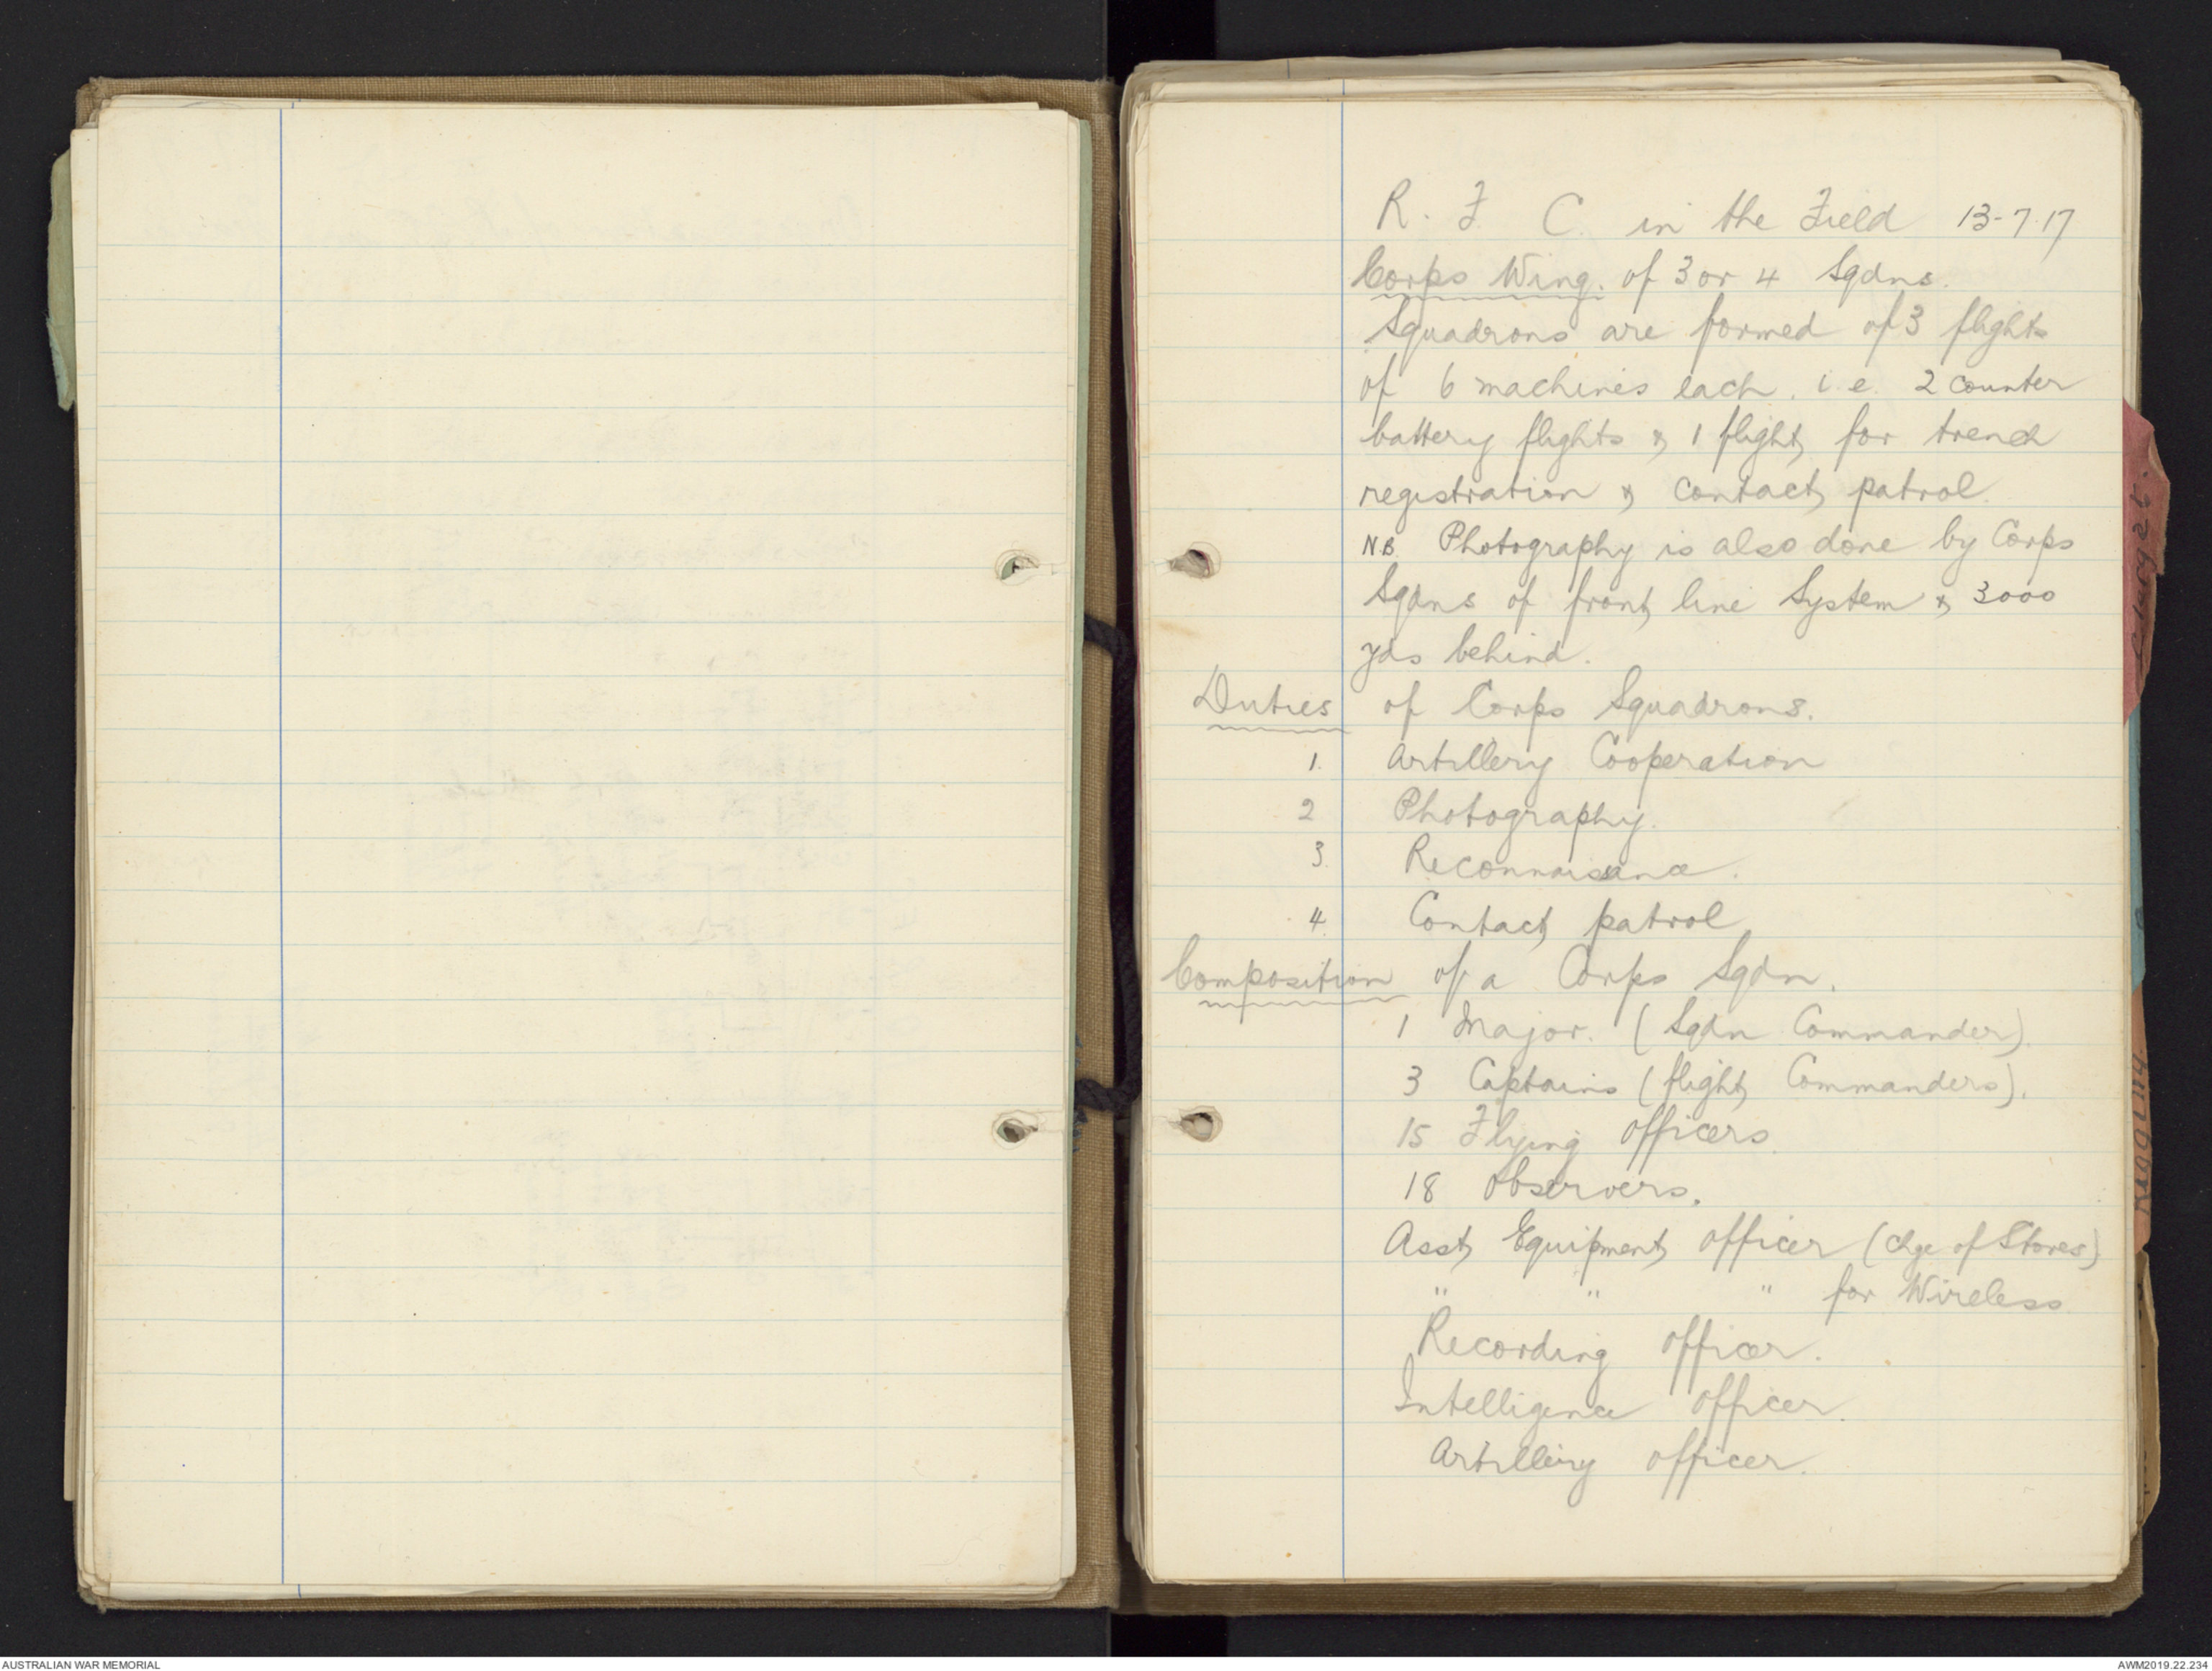 R. F. C. in the Field 13-7-17
Corps Wing. of 3 or 4 Sqdns.
Squadrons are formed of 3 flights
of 6 machines each. i.e. 2 counter
battery flights & 1 flight for trench
registration & contact patrol.
N.B. Photography is also done by Corps
Sqdns of front line System & 3000
yds behind.
Duties of Corps Squadrons.
1. Artillery Cooperation
2 Photography.
3. Reconnaissance.
4. Contact patrol
Composition of a Corps Sqdn.
1 Major. (Sqdn Commander).
3 Captains (flight Commanders).
15 Flying Officers.
18 Observers.
Asst Equipment Officer (chge of Stores)
" " " for Wireless
Recording Officer.
Intelligence Officer.
Artillery Officer.
AUSTRALIAN WAR MEMORIAL
AWM2019.22.234